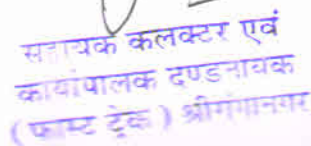 सहायक कलक्टर एवं
कार्यापालक दण्डनायक
(फास्ट ट्रेक) श्रीगंगानगर